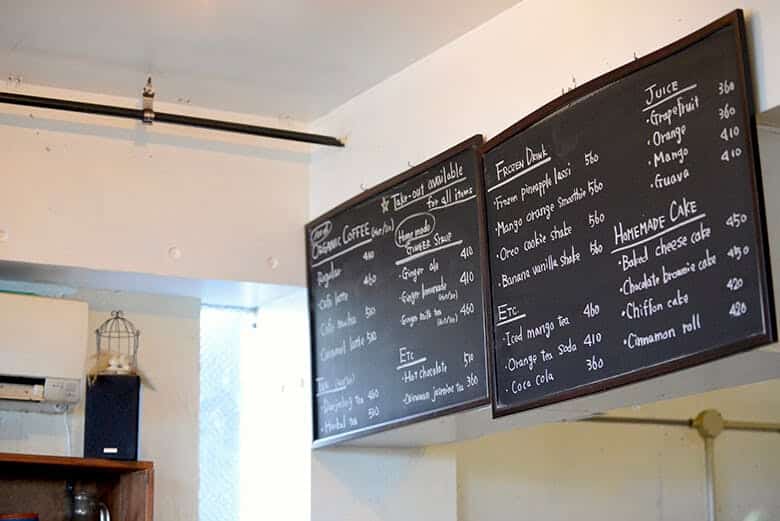 ☆ Take-out available
for all items
ORGANIC COFFEE (Hot/Ice)
Regular 410
Cafe latte 460
Cafe mocha 510
Caramel latte 510
TEA (Hot/Ice)
Darjeeling tea 460
Herbal tea 510
Home made
GINGER SYRUP
• Ginger ale 410
• Ginger lemonade (Hot/Ice) 410
• Ginger milk tea (Hot/Ice) 460
ETC
• Hot chocolate 510
• Okinawan jasmine tea 360
FROZEN DRINK
• Frozen pineapple lassi 560
• Mango orange smoothie 560
• Oreo cookie shake 560
• Banana vanilla shake 560
ETC.
• Iced mango tea 460
• Orange tea soda 410
• Coca cola 360
JUICE
• Grapefruit 360
• Orange 360
• Mango 410
• Guava 410
HOMEMADE CAKE
• Baked cheese cake 450
• Chocolate brownie cake 450
• Chiffon cake 420
• Cinnamon roll 420